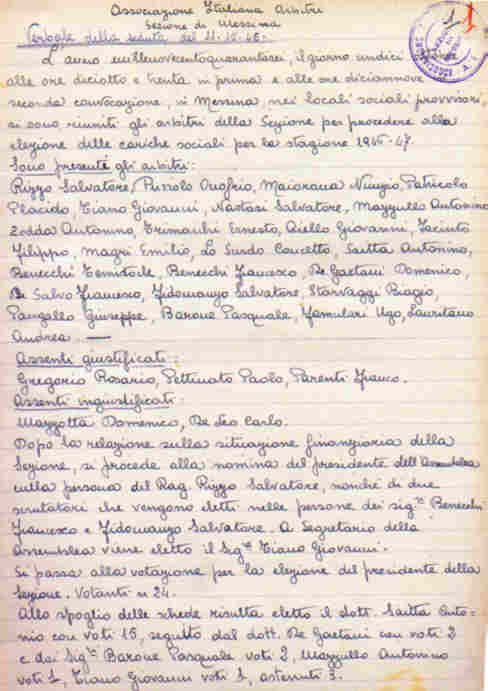 Associazione Italiana Arbitri
Sezione di Messina
1 1
Verbale della seduta del 11-10-46=
L'anno millenovecentoquarantasei, il giorno undici
alle ore diciotto e trenta in prima e alle ore diciannove
seconda convocazione, in Messina, nei locali sociali provvisori,
si sono riuniti gli arbitri della Sezione per procedere alla
elezione delle cariche sociali per la stagione 1946-47.
Sono presenti gli arbitri:
Rizzo Salvatore, Pizzolo Onofrio, Maiorana Nunzio, Patricolo
Placido, Tiano Giovanni, Nastasi Salvatore, Mazzullo Antonino
Zodda Antonino, Trimarchi Ernesto, Aiello Giovanni, Jacinto
Filippo, Magri Emilio, Lo Surdo Concetto, Saitta Antonino,
Benecchi Temistocle, Benecchi Francesco, De Gaetani Domenico,
Di Salvo Francesco, Fidomanzo Salvatore, Starvaggi Biagio,
Pangallo Giuseppe, Barone Pasquale, Famulari Ugo, Lauritano
Andrea. —
Assenti giustificati:
Gregorio Rosario, Pettinato Paolo, Parenti Franco.
Assenti ingiustificati:
Mazzotta Domenico, De Leo Carlo.
Dopo la relazione sulla situazione finanziaria della
Sezione, si procede alla nomina del presidente dell'Assemblea
nella persona del Rag. Rizzo Salvatore, nonché di due
scrutatori che vengono eletti nelle persone dei sig.ri Benecchi
Francesco e Fidomanzo Salvatore. A Segretario della
Assemblea viene eletto il Sig. Tiano Giovanni.
Si passa alla votazione per la elezione del presidente della
Sezione. Votanti n 24.
Allo spoglio delle schede risulta eletto il dott. Saitta Anto-
nio con voti 15, seguito dal dott. De Gaetani con voti 2
e dai Sig.ri Barone Pasquale voti 2, Mazzullo Antonino
voti 1, Tiano Giovanni voti 1, astenuti 3.